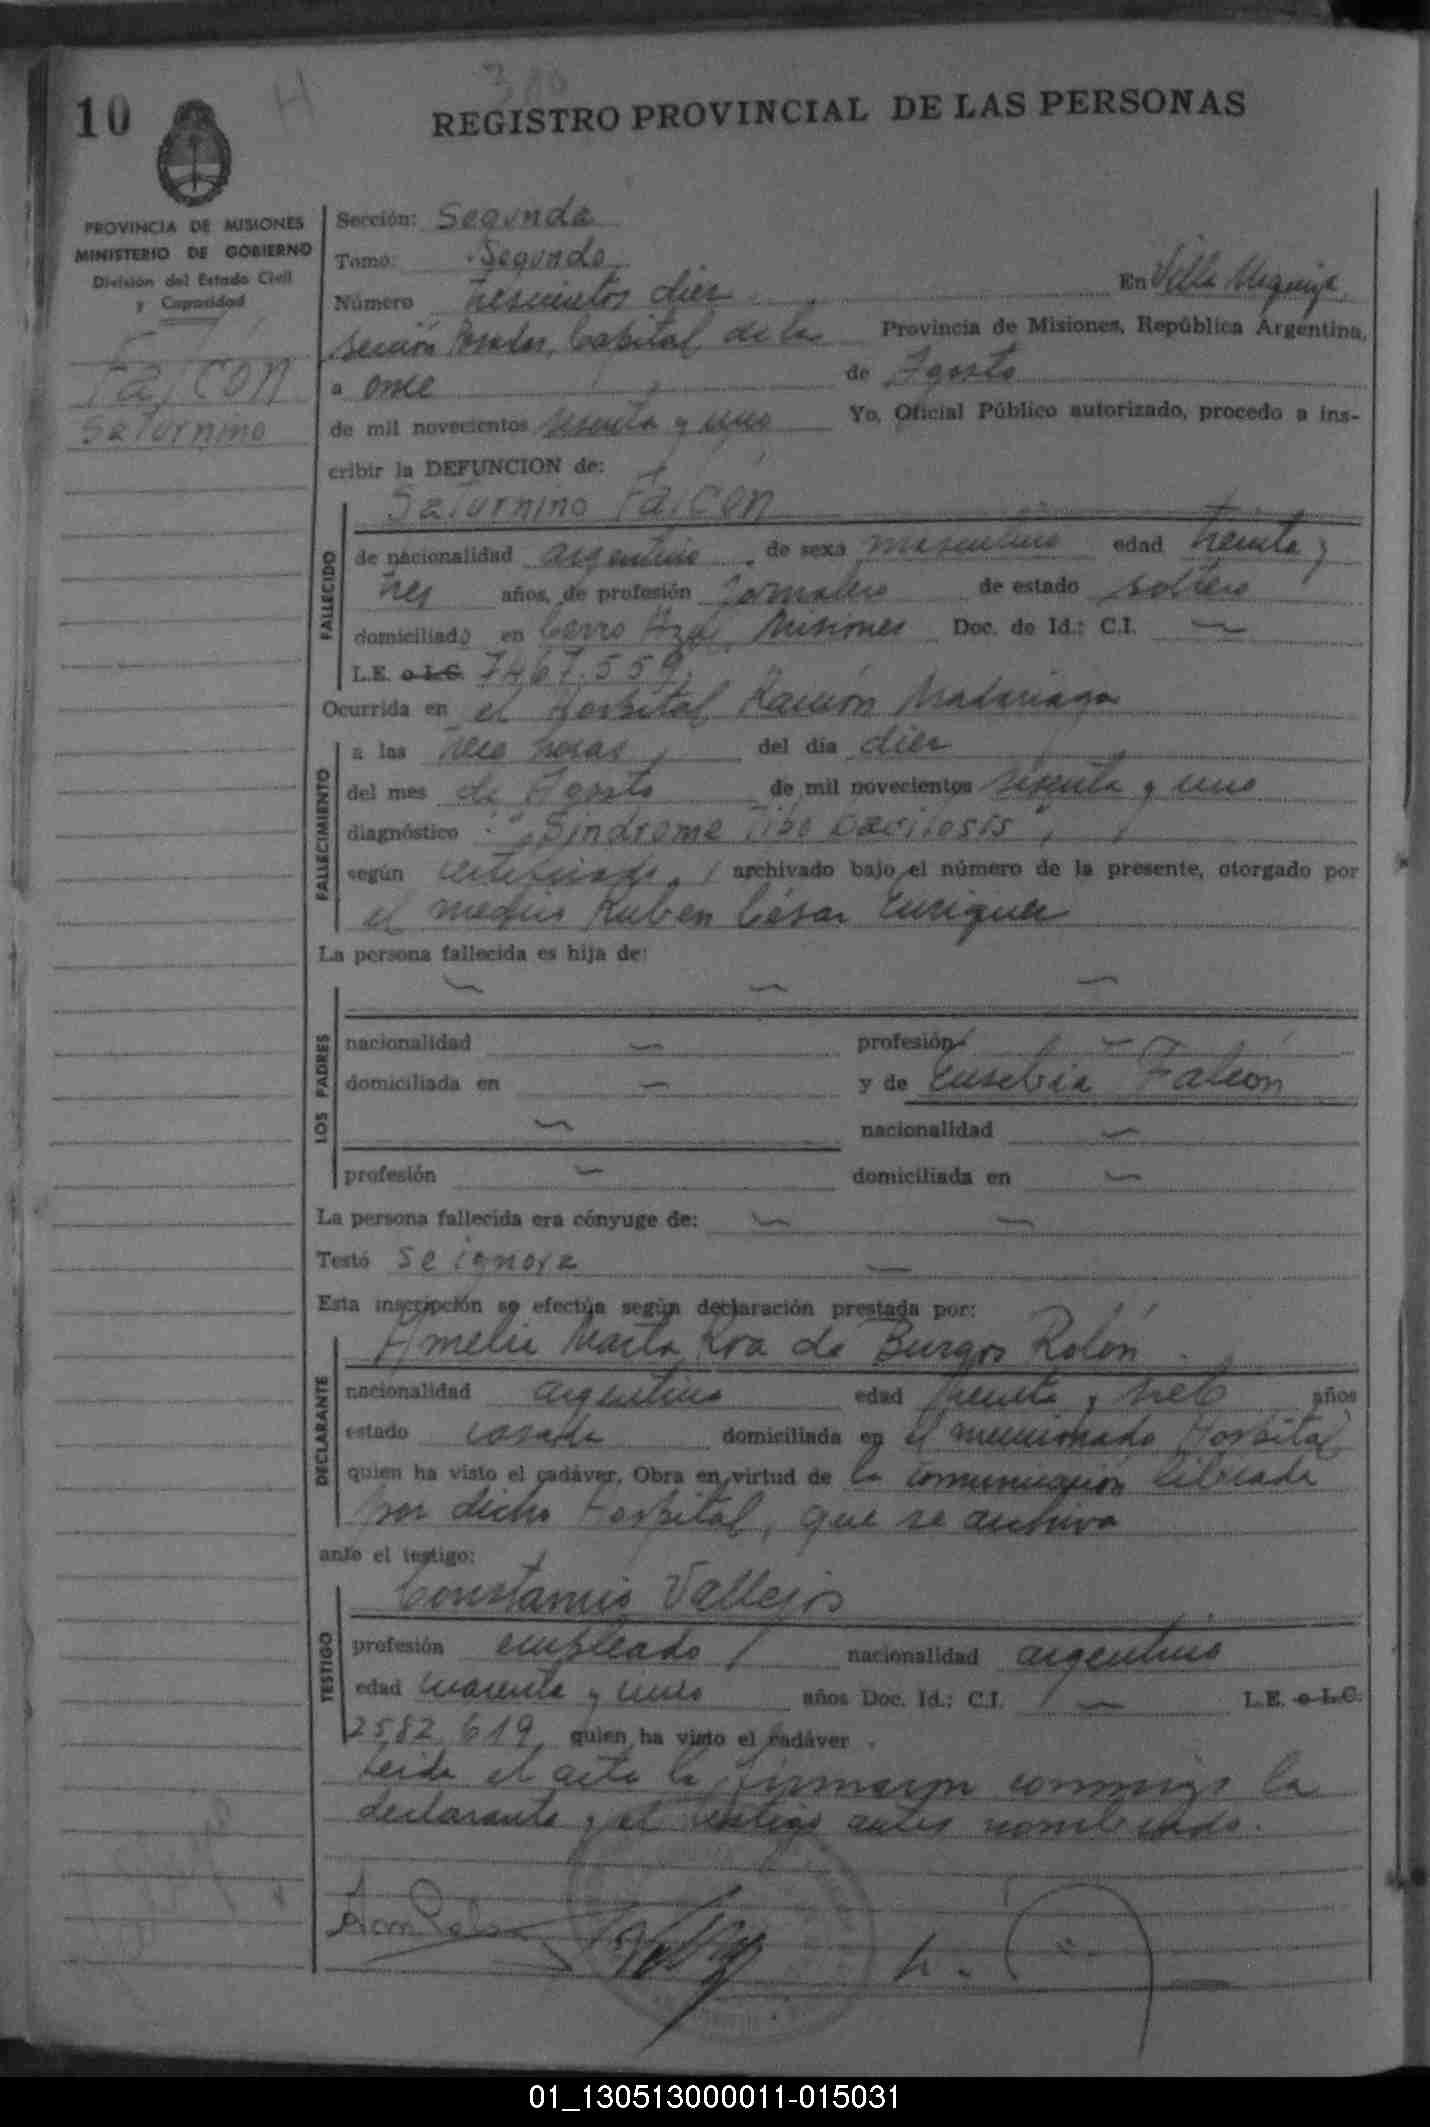 10
H
REGISTRO PROVINCIAL DE LAS PERSONAS
PROVINCIA DE MISIONES
MINISTERIO DE GOBIERNO
División del Estado Civil
y Capacidad
Falcón
Saturnino
Sección: Segunda
Tomo: Segundo
Número trescientos diez En Villa Urquiza,
sección Posadas, Capital de la Provincia de Misiones, República Argentina,
a once de Agosto
de mil novecientos sesenta y uno Yo, Oficial Público autorizado, procedo a ins-
cribir la DEFUNCION de:
Saturnino Falcón
FALLECIDO
de nacionalidad argentino de sexo masculino edad treinta y
tres años, de profesión jornalero de estado soltero
domiciliado en Cerro Azul, Misiones Doc. de Id.: C.I. —
L.E. o L.C. 7467.559,
Ocurrida en el Hospital Ramón Madariaga
FALLECIMIENTO
a las trece horas, del día diez
del mes de Agosto de mil novecientos sesenta y uno
diagnóstico "Síndrome
según certificado archivado bajo el número de la presente, otorgado por
el médico Ruben César Enriquez
La persona fallecida es hija de:
LOS PADRES
— — —
nacionalidad — profesión —
domiciliada en — y de Eusebia Falcón
— nacionalidad —
profesión — domiciliada en —
La persona fallecida era cónyuge de: — —
Testó se ignora —
Esta inscripción se efectúa según declaración prestada por:
DECLARANTE
Amelia Marta Roa de Burgos Rolón
nacionalidad argentina edad treinta y tres años
estado casada domiciliada en el mencionado Hospital,
quien ha visto el cadáver. Obra en virtud de la comunicación librada
por dicho Hospital, que se archiva
ante el testigo:
TESTIGO
Constancio Vallejos
profesión empleado nacionalidad argentino
edad cuarenta y uno años Doc. Id.: C.I. — L.E. o L.C.
2582.619, quien ha visto el cadáver.
Leida el acta la firmaron conmigo la
declarante y el testigo antes nombrado.
01_130513000011-015031